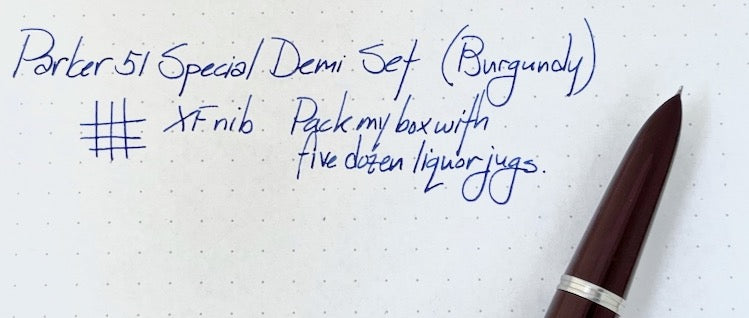 Parker 51 Special Demi Set (Burgundy)
XF nib. Pack my box with
five dozen liquor jugs.